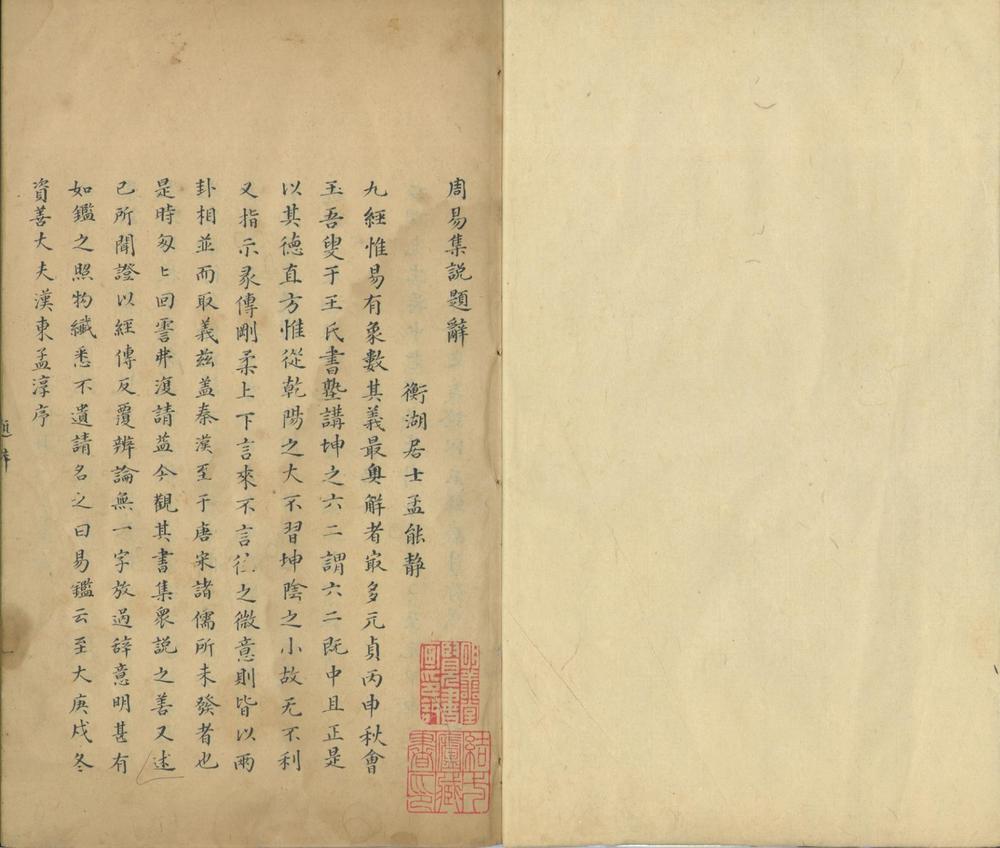 周易集說題辭
衡湖居士孟能靜
九經惟易有象數其義最奧解者㝡多元貞丙申秋會
玉吾叟于王氏書塾講坤之六二謂六二既中且正是
以其德直方惟從乾陽之大不習坤陰之小故无不利
又指示彖傳剛柔上下言來不言往之微意則皆以兩
卦相並而取義茲盖秦漢至于唐宋諸儒所未發者也
是時匆匕回霅弗復請益今觀其書集衆說之善又述
已所聞證以經傳反覆辨論無一字放過辞意明甚有
如鑑之照物纖悉不遺請名之曰易鑑云至大庚戌冬
資善大夫漢東孟淳序
結一廬藏書印